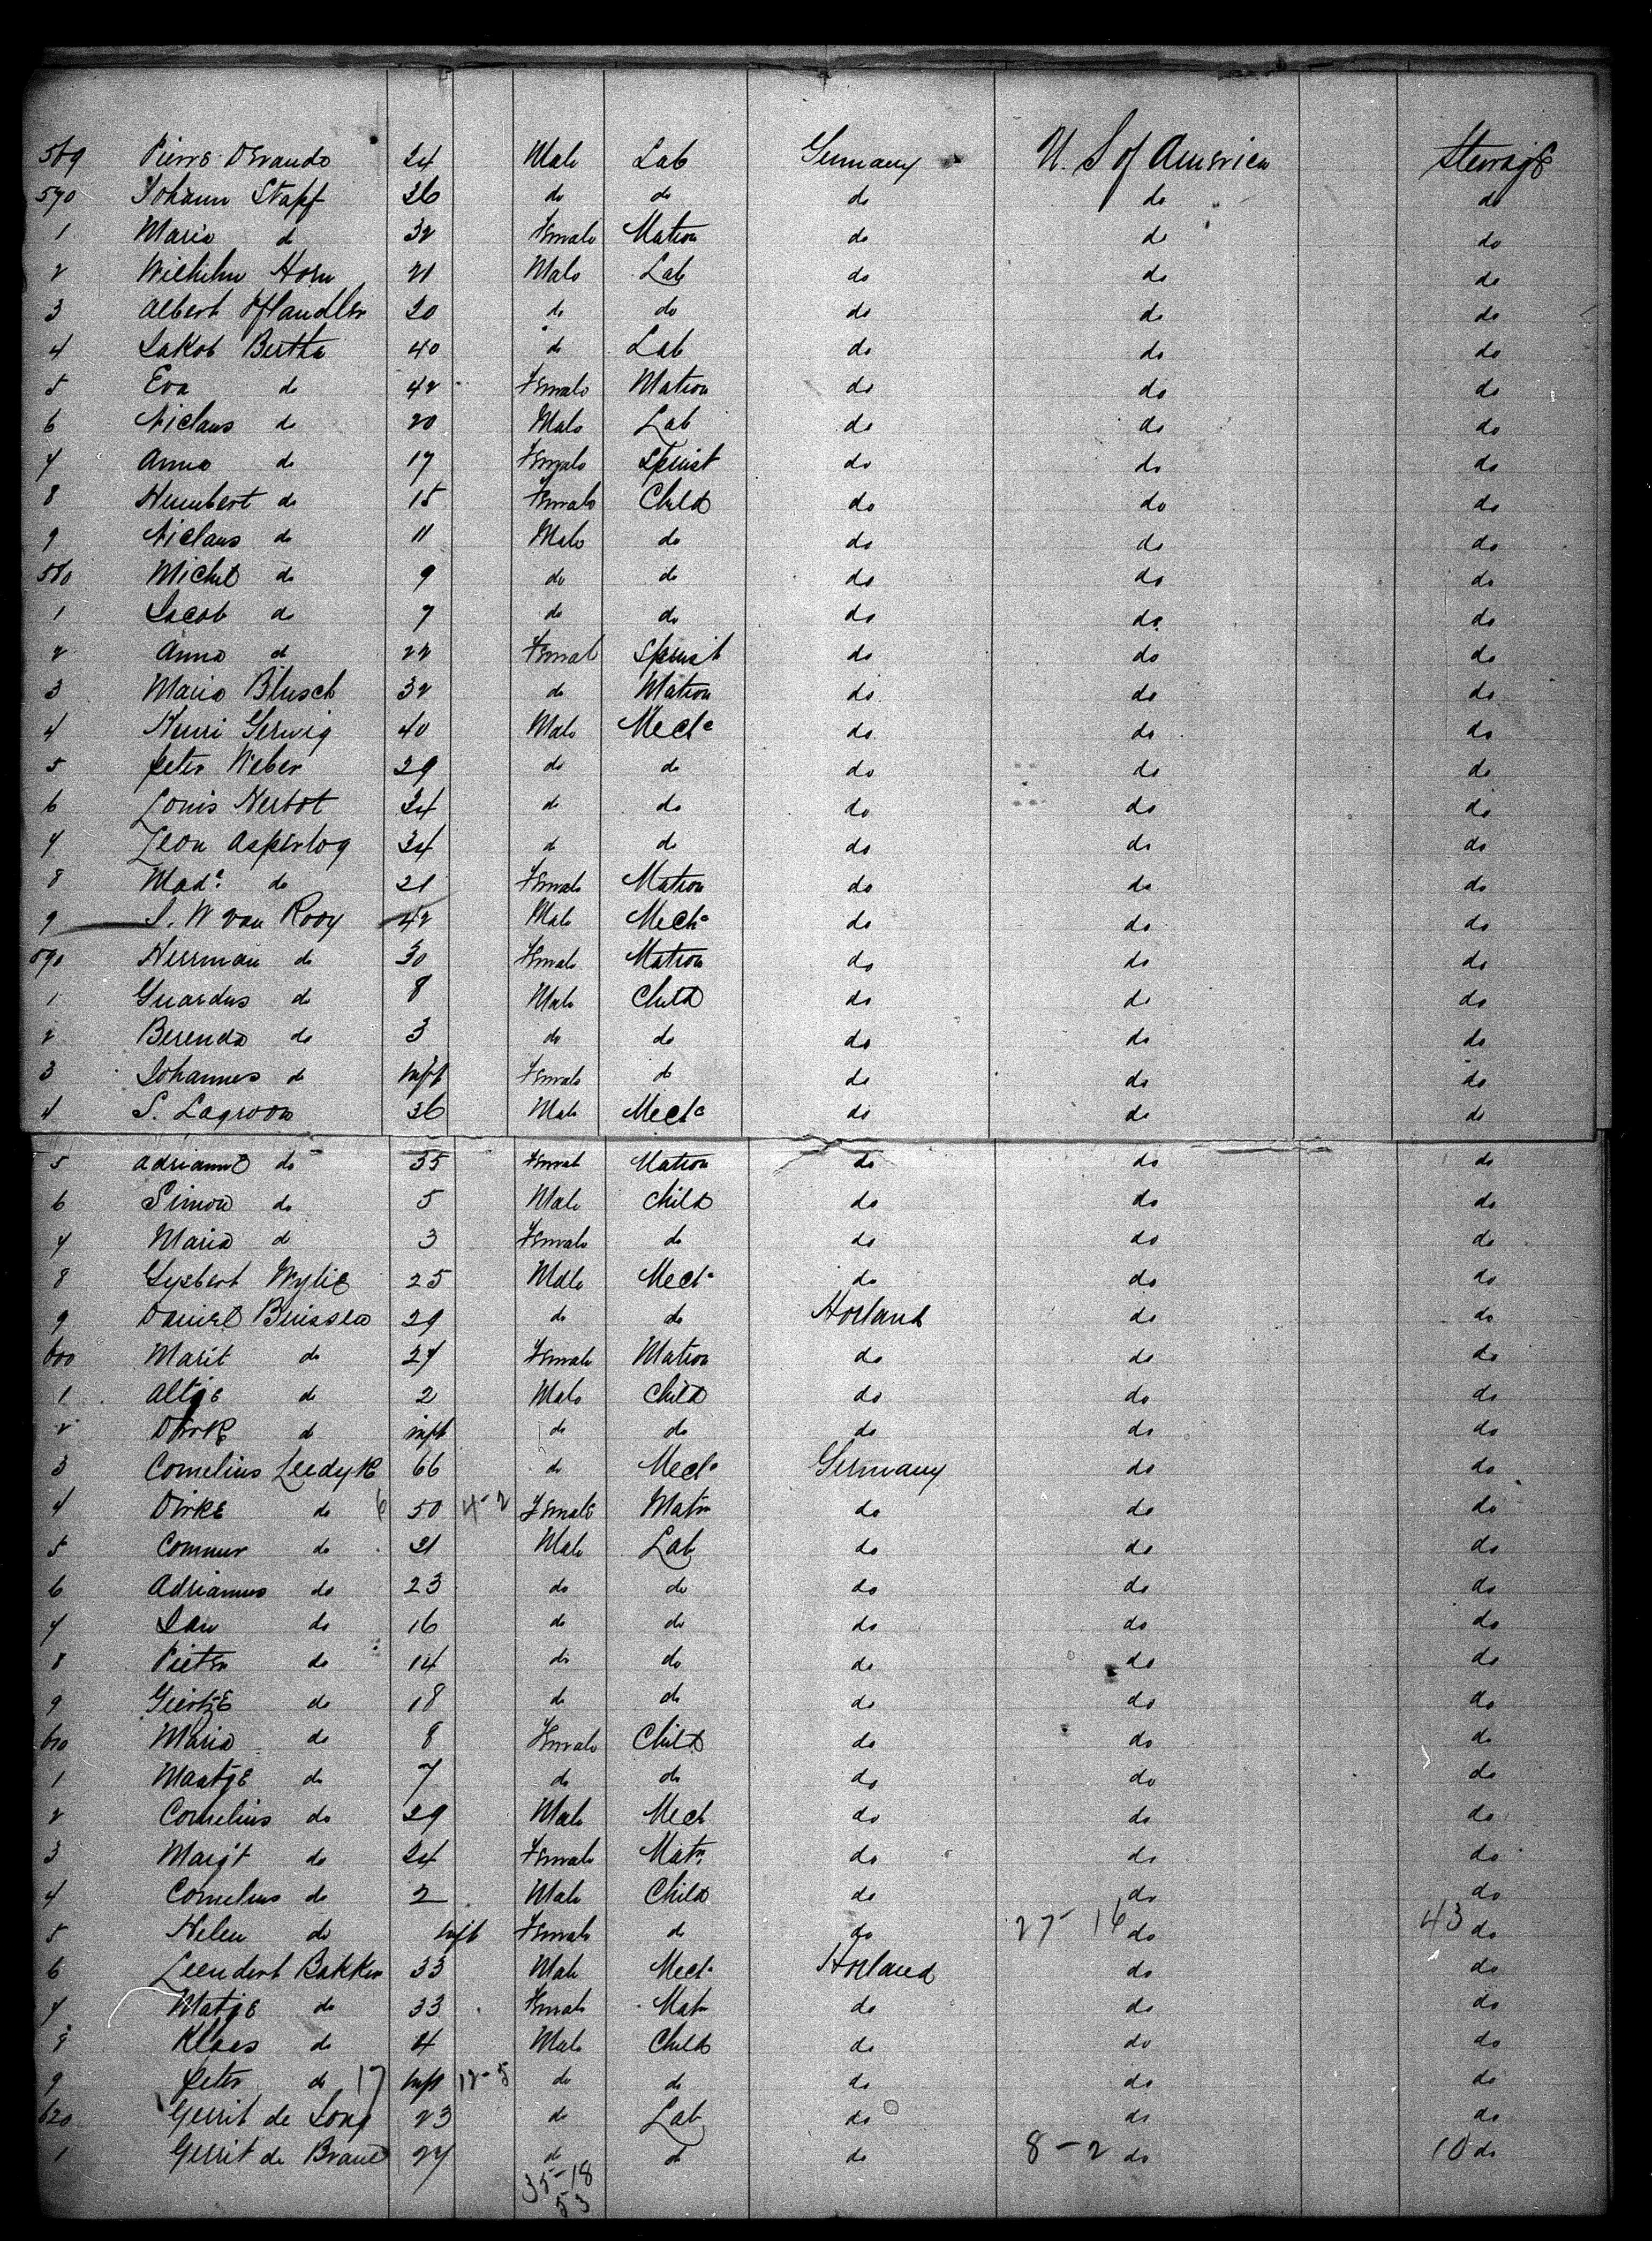 569 Pierre Derando 24 Male Lab Germany U. S of America Steerage
570 Johann Stapf 26 do do do do do
1 Maria do 32 Female Matron do do do
2 Wilhelm Horn 21 Male Lab do do do
3 Albert Pflandler 20 do do do do do
4 Jakob Bertha 40 do Lab do do do
5 Eva do 42 Female Matron do do do
6 Niclaus do 20 Male Lab do do do
7 Anna do 17 Female Spinst do do do
8 Humbert do 15 Female Child do do do
9 Niclaus do 11 Male do do do do
580 Michel do 9 do do do do do
1 Jacob do 7 do do do do do
2 Anna do 22 Female Spinst do do do
3 Maria Blusch 32 do Matron do do do
4 Henri Gerwig 40 Male Mecha do do do
5 Peter Weber 29 do do do do do
6 Louis Nerbot 34 do do do do do
7 Leon Asperlog 34 do do do do do
8 Made do 21 Female Matron do do do
9 J. W van Rooy 42 Male Mecha do do do
590 Herrman do 30 Female Matron do do do
1 Guardus do 8 Male Child do do do
2 Berenda do 3 do do do do do
3 Johannes do Inft Female do do do do
4 S. Lagroon 36 Male Mecha do do do
5 Adrianne do 35 Female Matron do do do
6 Simon do 5 Male Child do do do
7 Maria do 3 Female do do do do
8 Gysbert Wylie 25 Male Mecha do do do
9 Daniel Buissea 29 do do Holland do do
600 Marit do 27 Female Matron do do do
1 Altje do 2 Male Child do do do
2 Dirk do inft do do do do do
3 Cornelius Leedyk 66 do Mecha Germany do do
4 Dirke do 6 50 4-2 Female Matn do do do
5 Commer do 21 Male Lab do do do
6 Adrianus do 23 do do do do do
7 Jan do 16 do do do do do
8 Pieter do 14 do do do do do
9 Giertje do 18 do do do do do
610 Maria do 8 Female Child do do do
1 Maatje do 7 do do do do do
2 Cornelius do 29 Male Mech do do do
3 Margt do 24 Female Matn do do do
4 Cornelius do 2 Male Child do do do
5 Helen do Inft Female do do 27-16 do 43 do
6 Leendert Bakker 33 Male Mecha Holland do do
7 Matje do 33 Female Matn do do do
8 Klaas do 4 Male Child do do do
9 Peter do 17 Inft 12-5 do do do do do
620 Gerrit de Jong 23 do Lab do do do
1 Gerrit de Braue 27 do do do 8-2 do 10 do
35-18
53